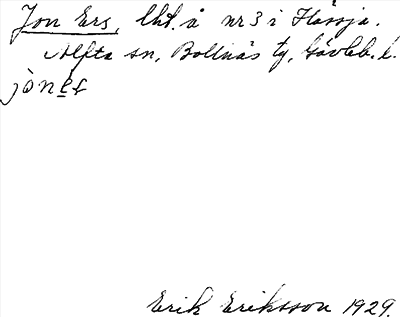 Jon Ers, lht. å nr 3 i Hässja.
Alfta sn, Bollnäs tg, Gävleb. l.
jònes
Erik Eriksson 1929.